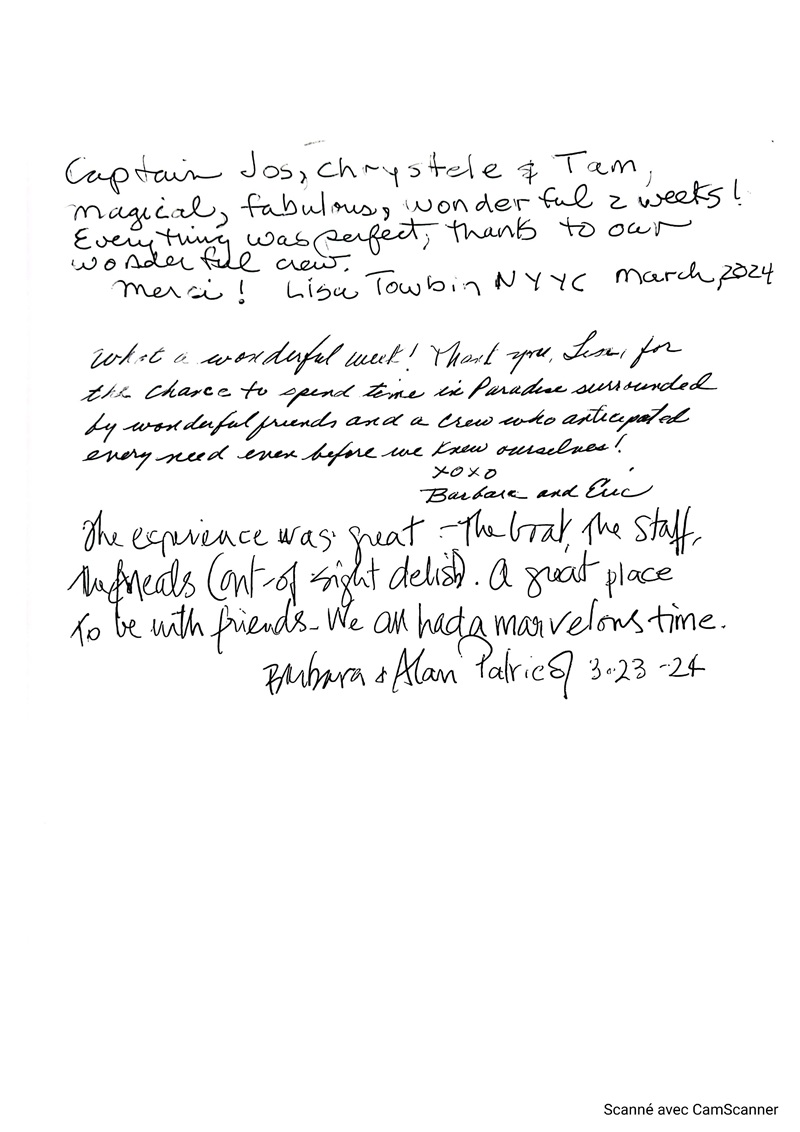 Captain Jos, Chrystele & Tam,
magical, fabulous, wonderful 2 weeks!
Everything was perfect, thanks to our
wonderful crew.
Merci! Lisa Towbin NYYC March, 2024
What a wonderful week! Thank you, Lisa, for
the chance to spend time in Paradise surrounded
by wonderful friends and a crew who anticipated
every need even before we knew ourselves!
XOXO
Barbara and Eric
The experience was great - The boat, The Staff,
The meals (out-of sight delish). A great place
To be with friends - We all had a marvelous time.
Barbara & Alan 3-23-24
Scanné avec CamScanner